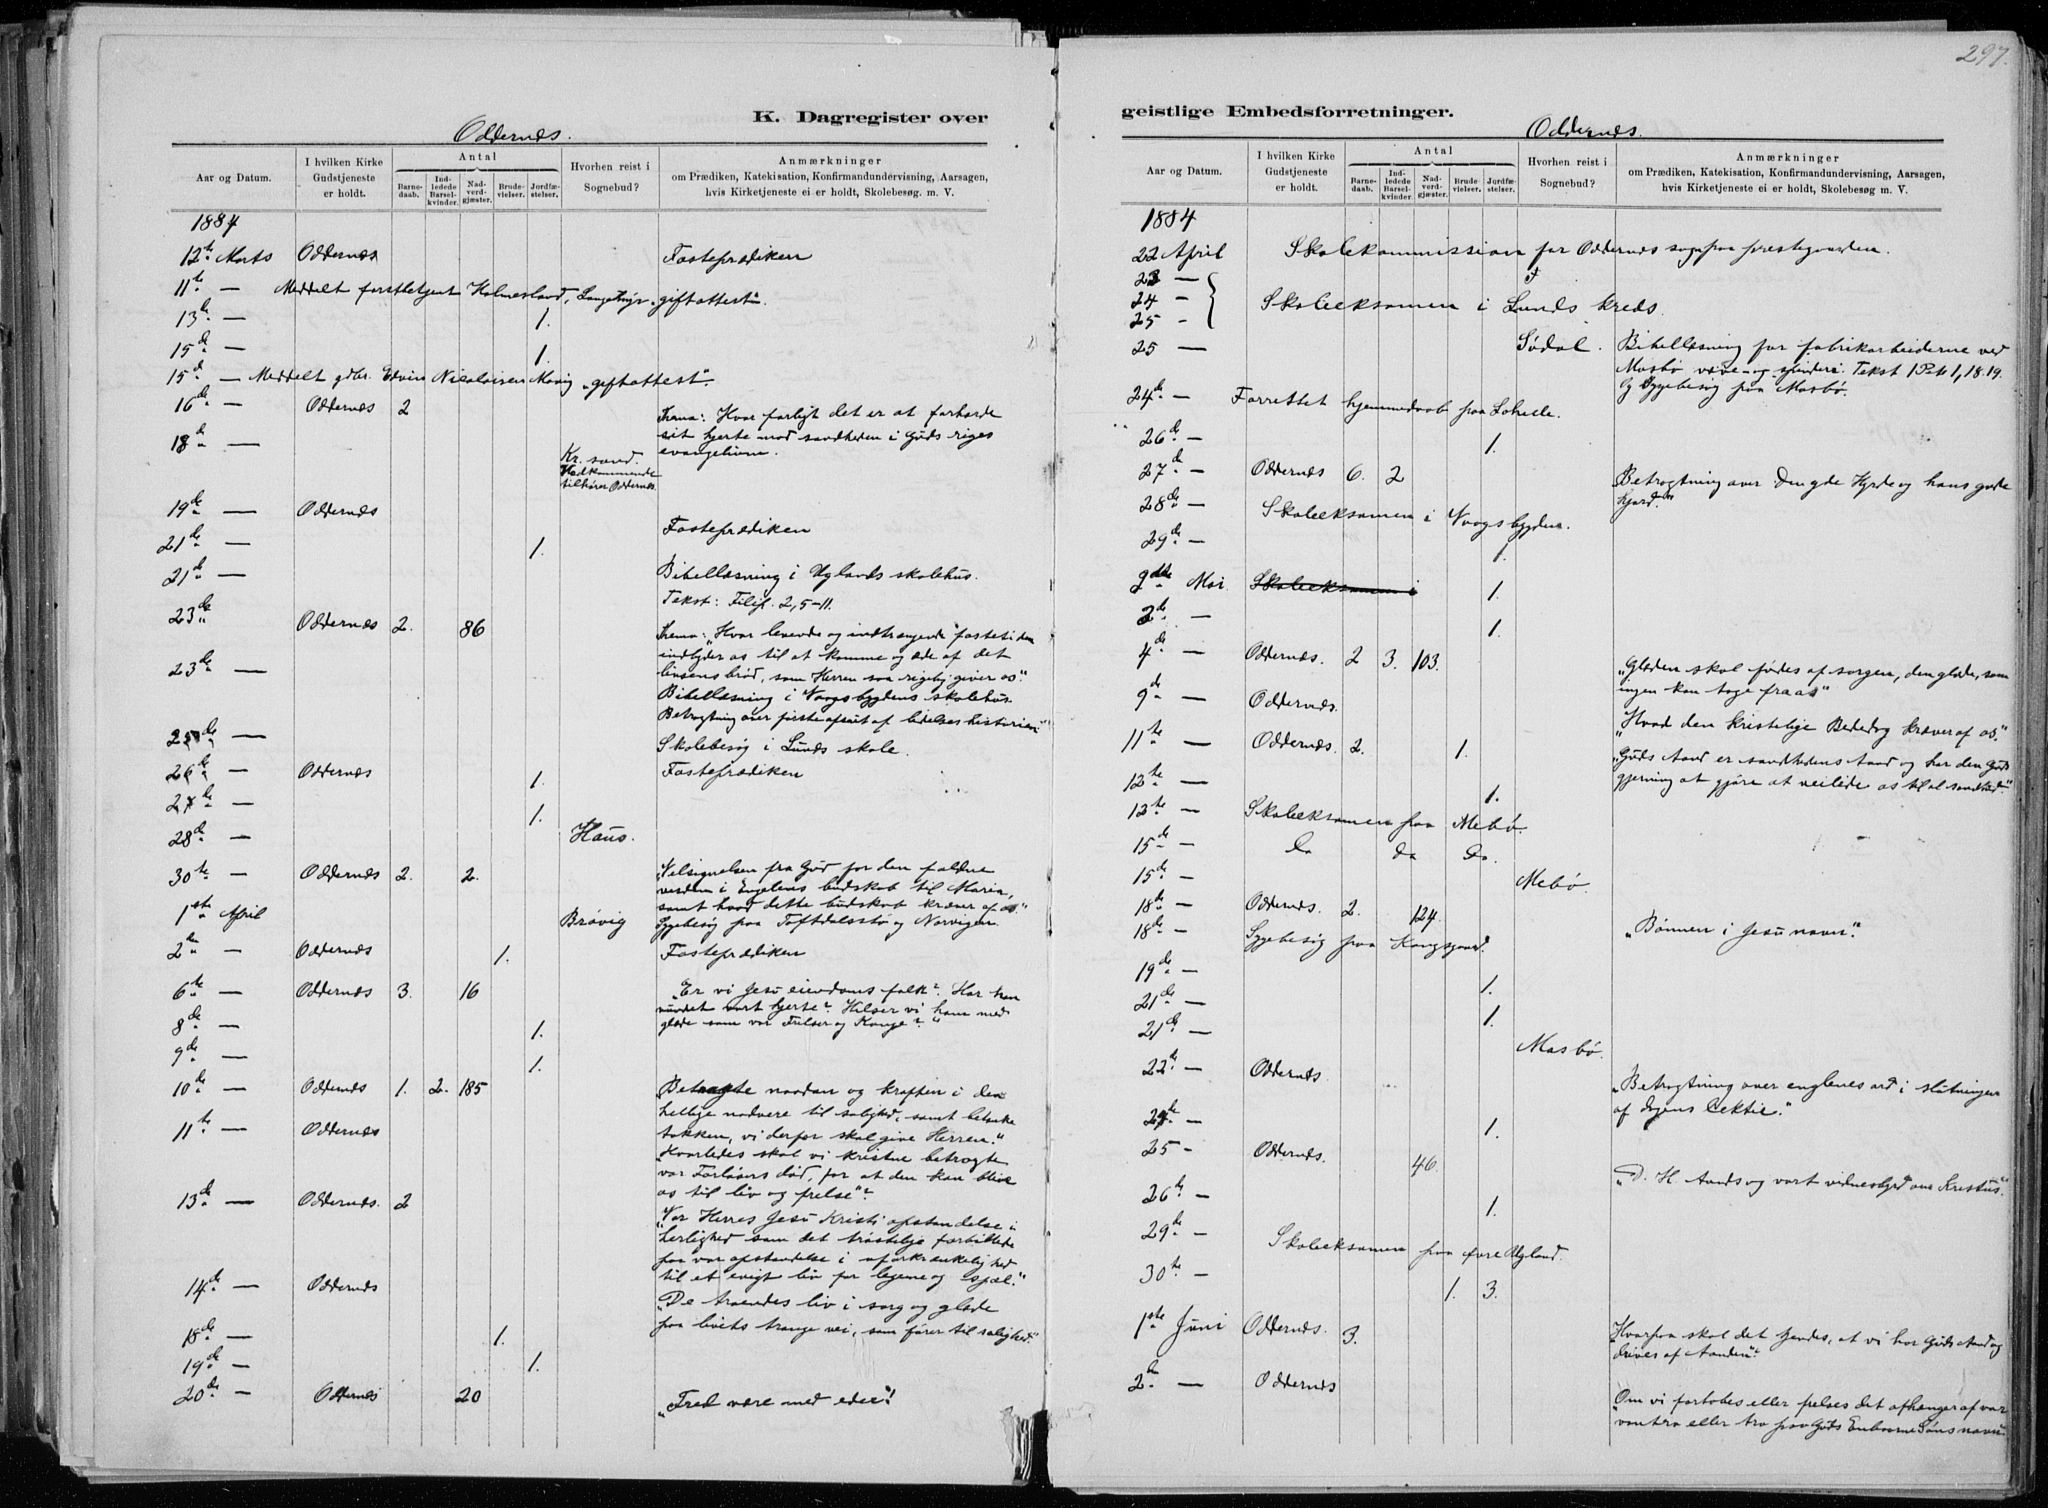 297.
K. Dagregister over
Oddernes.
Aar og Datum. I hvilken Kirke Gudstjeneste er holdt. Antal Barnedaab. Indledede Barselkvinder. Nadverdgjæster. Brudevielser. Jordfæstelser. Hvorhen reist i Sognebud? Anmærkninger om Prædiken, Katekisation, Konfirmandundervisning, Aarsagen, hvis Kirketjeneste ei er holdt, Skolebesøg. m. V.
1884
12te Marts Oddernes Fasteprædiken
11te — Meddelt Holmesland, giftattest".
13de — 1.
15de — 1.
15de — Meddelt gdbr. Edvin Nicolaisen Movig „giftattest".
16de — Oddernes 2 Thema: Hvor farligt det er at forharde
sit hjerte mod sandheden i Guds riges
evangelium.
18de — Kr.sand.
Vedkommende
tilhører Oddernes.
19de — Oddernes Fasteprædiken
21de — 1.
21de — Bibellæsning i Uglands skolehus.
Tekst: Filip. 2, 5-11.
23de Oddernes 2. 86 Thema: „Hvor levende og indtrængende fastetiden
indbyder os til at komme og æde af det
livsens brød, som Herren saa rigelig giver os."
23de — Bibellæsning i Vaagsbygdens skolehus.
Betragtning over første afsnit af lidelseshistorien"
25de — Skolebesøg i Lunds skole.
26de — Oddernes 1. Fasteprædiken
27de — 1.
28de — Haus.
30te — Oddernes 2. 2. „Velsignelsen fra Gud for den faldne
verden i Engelens budskab til Maria,
samt hvad dette budskab kræver af os."
1ste April Brøvig Sygebesøg paa Toftdalsstø og Norvigen.
2den — Oddernes 1. Fasteprædiken
6te — Oddernes 3. 16 „Er vi Jesu eiendoms folk? Har han
vort hjerte? Hilser vi ham med
glæde som vor Frelser og Konge?"
8de — 1.
9de — 1.
10de — Oddernes 1. 2. 185 Betragte naaden og kraften i den
hellige nadvere til salighed, samt betænke
takken, vi derfor skal give Herren."
11te — Oddernes „Hvorledes skal vi kristne betragte
vor Forløsers død, for at den kan blive
os til liv og frelse"?
13de — Oddernes. 2 „Vor Herres Jesu Kristi opstandelse i
herlighed som det trøstelige forbillede
paa vor opstandelse i uforkrænkelighed
til et evigt liv for legeme og sjæl."
14de — Oddernes „De troendes liv i sorg og glæde
paa livets trange vei, som fører til salighed."
18de — 1.
19de — 1.
20de — Oddernes 20 „Fred være med eder"!
geistlige Embedsforretninger.
Oddernes.
Aar og Datum. I hvilken Kirke Gudstjeneste er holdt. Antal Barnedaab. Indledede Barselkvinder. Nadverdgjæster. Brudevielser. Jordfæstelser. Hvorhen reist i Sognebud? Anmærkninger om Prædiken, Katekisation, Konfirmandundervisning, Aarsagen, hvis Kirketjeneste ei er holdt, Skolebesøg m. V.
1884
22 April Skolekommission for Oddernes sogn paa præstegaarden.
23 —
24 — Skoleeksamen i Lunds kreds.
25 —
25 — Sødal. Bibellæsning for fabrikarbeiderne ved
Mosbø væve- og spinderi. Tekst 1 Pet. 1, 18.19.
Og Sygebesøg paa Mosbø.
24de — Forrettet hjemmedaab paa
26de — 1.
27de — Oddernes 6. 2 Betragtning over den gode Hyrde og hans gode
hjord."
28de — Skoleeksamen i Vaagsbygden.
29de — 1.
2den Mai. Skoleeksamen i 1.
2de — 1.
4de — Oddernes. 2 3. 103. „Glæden skal fødes af sorgen, den glæde, som
ingen kan tage fra os"
9de — Oddernes. „Hvad den kristelige Bededag kræver af os."
11te — Oddernes. 2. 1. „Guds Aand er sandhedens Aand og har den Guds
gjerning at gjøre at veilede os til al sandhed."
12te — 1.
13te — Skoleeksamen paa Mebø.
15de — Do Do Do.
15de — Mebø.
18de — Oddernes. 2. 124. „Bønnen i Jesu navn."
18de — Sygebesøg paa Kongsgaard.
19de — 1.
21de — 1.
21de — Mosbø.
22de — Oddernes. „Betragtning over englenes ord i slutningen
af dagens Lektie."
24de — 1.
25 — Oddernes. 46. „D. H. Aands og vort vidnesbyrd om Kristus."
26de — 1.
29de — Skoleeksamen paa øvre Ugland.
30te — 1. 3.
1ste Juni Oddernes. 3. Hvorpaa skal det kjendes, at vi har Guds Aand og
drives af Aanden"?
2den — Oddernes „Om vi fortabes eller frelses det afhænger af vor
vantro eller tro paa Guds Enbaarne Søns navn."